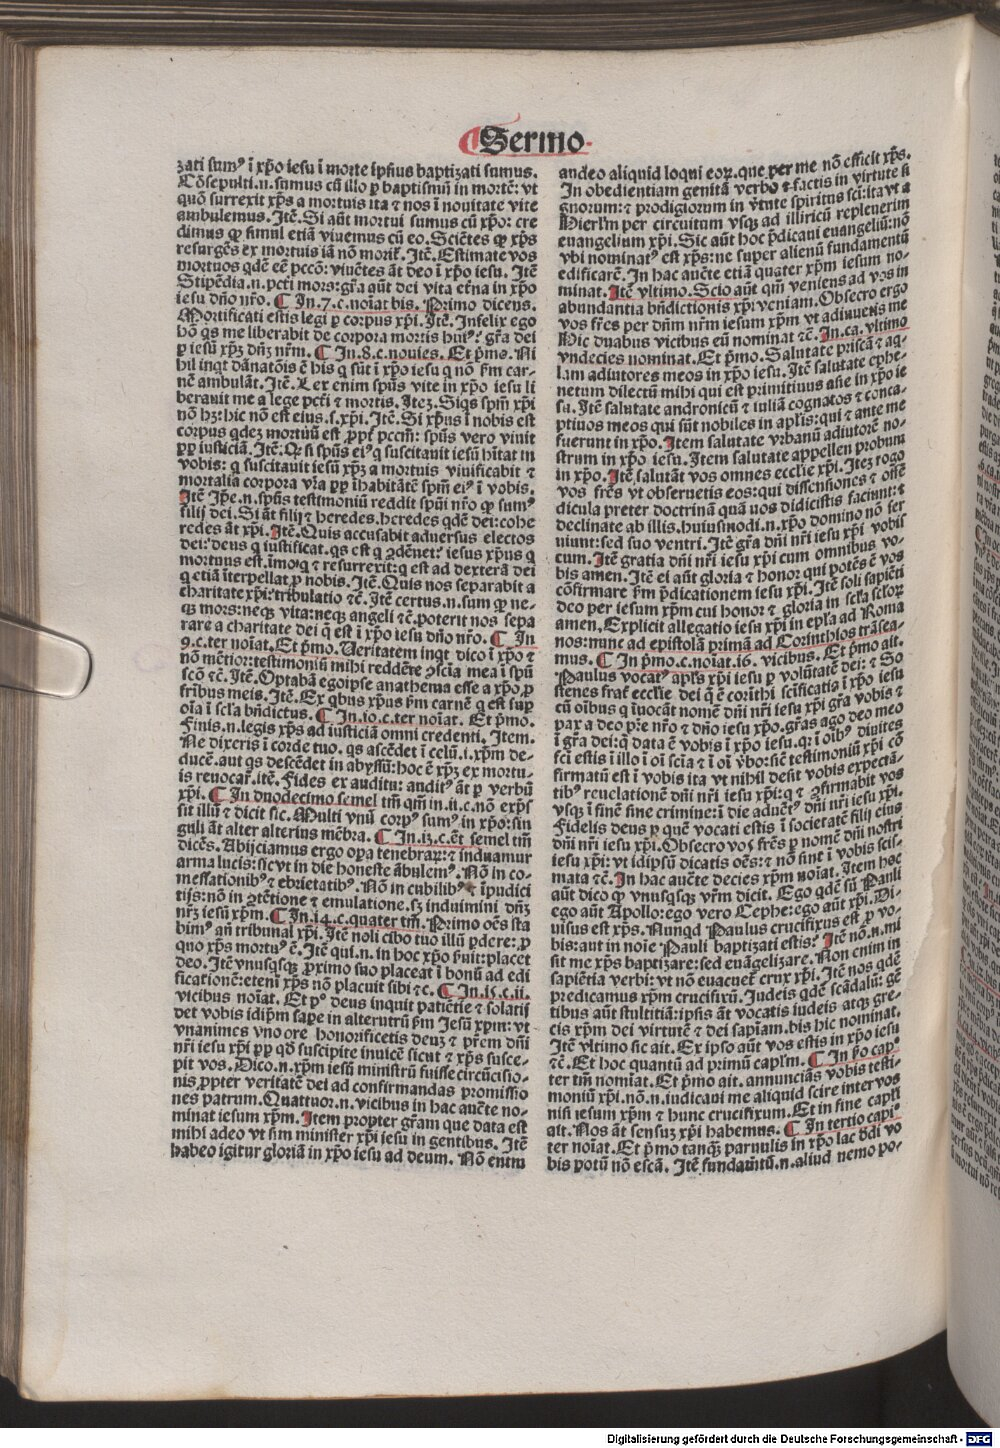 Sermo
zati sumꝰ ī xp̄o iesu ī morte ipsius baptizati sumus.
Cōsepulti.n.sumus cū illo p̱ baptismū in mortē: vt
quō surrexit xp̄s a mortuis ita ⁊ nos ī nouitate vite
ambulemus. Itē. Si aūt mortui sumus cū xp̄o: cre
dimus ꝙ simul etiā viuemus cū eo. Sciētes ꝙ xp̄s
resurgēs ex mortuis iā nō morit̄. Itē. Estimate vos
mortuos qdē eē pccō: viuētes āt deo ī xp̄o iesu. Itē
Stipēdia.n.pcti mors: gr̄a aūt dei vita et̄na in xp̄o
iesu dn̄o nr̄o. ¶ In.7.c.noīat bis. Primo dicens.
Mortificati estis legi p̱ corpus xp̄i. Itē. Infelix ego
hō qs me liberabit de corpora mortis huiꝰ? gr̄a dei
p̱ iesū xp̄ꝫ dn̄ꝫ nr̄m. ¶ In.8.c.nouies. Et p̄me. Ni
hil inqt dānatōis ē his q sūt ī xp̄o iesu q nō ẜm car-
nē ambulāt. Itē. Lex enim spūs vite in xp̄o iesu li
berauit me a lege pcti ⁊ mortis. Iteꝫ. Siqs spm̄ xp̄i
nō hꝫ: hic nō est eius.s.xp̄i. Itē. Si xp̄us ī nobis est
corpus qdeꝫ mortuū est p̱pt̄ pccm̄: spūs vero viuit
pp̱ iusticiā. Itē. Q si spūs eiꝰ q suscitauit iesū hītat in
vobis: q suscitauit iesū xp̄ꝫ a mortuis viuificabit ⁊
mortalia corpora vr̄a pp̱ īhabitātē spm̄ eiꝰ ī vobis.
Itē Ip̄e.n.spūs testimoniū reddit spūi nr̄o ꝙ sumꝰ
filij dei. Si āt filij ⁊ heredes. heredes qdē dei: cohe
redes āt xp̄i. Itē. Quis accusabit aduersus electos
dei: deus q iustificat. qs est q ꝯdēnet? iesus xp̄us q
mortuus est. īmo q ⁊ resurrexit: q est ad dexterā dei
q etiā īterpellat p̱ nobis. Itē. Quis nos separabit a
charitate xp̄i: tribulatio ⁊c̄. Itē certus.n.sum ꝙ ne-
qꝫ mors: neqꝫ vita: neqꝫ angeli ⁊c̄. poterit nos sepa
rare a charitate dei q̄ est ī xp̄o iesu dn̄o nr̄o. ¶ In
9.c.ter noīat. Et p̄mo. Ueritatem inqt dico ī xp̄o ⁊
nō mētior: testimoniū mihi reddēte ꝯscīa mea ī spū
scō ⁊c̄. Itē. Optabā egoipse anathema esse a xp̄o p̱
fribus meis. Itē. Ex qbus xp̄us ẜm carnē q est suꝑ
oīa ī scl̄a bn̄dictus. ¶ In.10.c.ter noīat. Et p̄mo.
Finis.n.legis xp̄s ad iusticiā omni credenti. Item.
Ne dixeris ī corde tuo. qs ascēdet ī celū.i.xp̄m de-
ducē. aut qs descēdet in abyssū: hoc ē xp̄ꝫ ex mortu-
is reuocar̄. itē. Fides ex auditu: auditꝰ āt p̱ verbū
xp̄i. ¶ In duodecimo semel tm̄ qm̄ in.ii.c.nō exp̄s
sit illū ⁊ dicit sic. Multi vnū corpꝰ sumꝰ in xp̄o: sin
guli āt alter alterius mēbra. ¶ In.13.c.ēt semel tm̄
dicēs. Abijciamus ergo oꝑa tenebraꝝ: ⁊ induamur
arma lucis: sicvt in die honeste ābulemꝰ. Nō in co-
messationibꝰ ⁊ ebrietatibꝰ. Nō in cubilibꝰ ⁊ īpudici
tijs: nō in ꝯtētione ⁊ emulatione. sꝫ induimini dn̄ꝫ
nr̄ꝫ iesū xp̄m. ¶ In.14.c.quater tm̄. Primo oēs sta
bimꝰ an̄ tribunal xp̄i. Itē noli cibo tuo illū p̱dere: p̱
quo xp̄s mortuꝰ ē. Itē qui.n.in hoc xp̄o ẜuit: placet
deo. Itē vnusqsqꝫ p̱ximo suo placeat ī bonū ad edi
ficationē: etenī xp̄s nō placuit sibi ⁊c̄. ¶ In.15.c.ii.
vicibus noīat. Et pº deus inquit patiētie ⁊ solatij
det vobis idip̄m sape in alterutrū ẜm Iesū xpm̄: vt
vnanimes vno ore honorificetis deuꝫ ⁊ pr̄em dn̄i
nr̄i iesu xp̄i pp̱ qđ suscipite inuicē sicut ⁊ xp̄s susce-
pit vos. Dico.n.xp̄m iesū ministrū fuisse circūcisio-
nis p̱pter veritatē dei ad confirmandas promissio
nes patrum. Quattuor.n.vicibus in hac auc̄te no-
minat iesum xp̄m. Item propter gr̄am que data est
mihi adeo vt sim minister xp̄i iesu in gentibus. Itē
habeo igitur gloriā in xp̄o iesu ad deum. Nō enim
audeo aliquid loqui eoꝝ. que per me nō efficit xp̄s.
In obedientiam gentiū verbo ⁊ factis in virtute si
gnorum: ⁊ prodigiorum in v̄tute spiritus sci: ita vt a
Hierlm̄ per circuitum vsqꝫ ad illiricū repleuerim
euangelium xp̄i. Sic aūt hoc p̄dicaui euangeliū: nō
vbi nominatꝰ est xp̄s: ne super alienū fundamentū
edificarē. In hac auc̄te etiā quater xp̄m iesum no-
minat. Itē vltimo. Scio aūt qm̄ veniens ad vos in
abundantia bn̄dictionis xp̄i veniam. Obsecro ergo
vos fr̄es per dn̄m nr̄m iesum xp̄m vt adiuuetis me
Hic duabus vicibus eū nominat ⁊c̄. In.ca.vltimo
vndecies nominat. Et p̄mo. Salutate priscā ⁊ aq-
lam adiutores meos in xp̄o iesu. Itē salutate ephe-
netum dilectū mihi qui est primitiuus asie in xp̄o ie
su. Itē salutate andronicū ⁊ iuliā cognatos ⁊ conca-
ptiuos meos qui sūt nobiles in aplīs: qui ⁊ ante me
fuerunt in xp̄o. Item salutate vrbanū adiutorē no-
strum in xp̄o iesu. Item salutate appellen probum
in xp̄o. Itē salutāt vos omnes eccl̄ie xp̄i. Iteꝫ rogo
vos fr̄es vt obseruetis eos: qui dissensiones ⁊ offē
dicula preter doctrinā quā vos didicistis faciunt: ⁊
declinate ab illis. huiusmodi.n.xp̄o domino nō ser
uiunt: sed suo ventri. Itē gr̄a dn̄i nr̄i iesu xp̄i vobis
cum. Itē gratia dn̄i nr̄i iesu xp̄i cum omnibus vo-
bis amen. Itē ei aūt gloria ⁊ honor qui potēs ē vos
cōfirmare ẜm p̄dicationem iesu xp̄i. Itē soli sapiēti
deo per iesum xp̄m cui honor ⁊ gloria in scl̄a scl̄oꝝ
amen. Explicit allegatio iesu xp̄i in ep̄la ad Roma
nos: nunc ad epistolā primā ad Corinthios trāsea-
mus. ¶ In p̄mo.c.noīat.16. vicibus. Et p̄mo ait.
Paulus vocatꝰ apl̄s xp̄i iesu p̱ volūtatē dei: ⁊ So
stenes frat̄ eccl̄ie dei q̄ ē corīthi scificatis ī xp̄o iesu
cū oībus q īuocāt nomē dn̄i nr̄i iesu xp̄i gr̄a vobis ⁊
pax a deo pr̄e nr̄o ⁊ dn̄o iesu xp̄o. gr̄as ago deo meo
ī gr̄a dei: q̄ data ē vobis ī xp̄o iesu. qꝛ ī oībꝰ diuites
fci estis ī illo ī oī scīa ⁊ ī oī v̄bo: sic̄ testimoniū xp̄i cō
firmatū est ī vobis ita vt nihil desit vobis expectā-
tibꝰ reuelationē dn̄i nr̄i iesu xp̄i: q ⁊ ꝯfirmabit vos
vsqꝫ ī finē sine crimine: ī die aduētꝰ dn̄i nr̄i iesu xp̄i.
Fidelis deus p̱ quē vocati estis ī societatē filij eius
dn̄i nr̄i iesu xp̄i. Obsecro vos fr̄es p̱ nomē dn̄i nostri
iesu xp̄i: vt idipsū dicatis oēs: ⁊ nō sint ī vobis scis-
mata ⁊c̄. In hac auc̄te decies xp̄m noīat. Item hoc
aūt dico ꝙ vnusqsqꝫ vr̄m dicit. Ego qdē sū Pauli
ego aūt Apollo: ego vero Cephe: ego aūt xp̄i. Di-
uisus est xp̄s. Nunqd Paulus crucifixus est p̱ vo-
bis: aut in noīe Pauli baptizati estis? Itē nō.n.mi
sit me xp̄s baptizare: sed euāgelizare. Non enim in
sapiētia verbi: vt nō euacuet̄ crux xp̄i. Itē nos qdē
predicamus xp̄m crucifixū. Iudeis qdē scādalū: gē
tibus aūt stultitiā: ipsis āt vocatis iudeis atqꝫ gre-
cis xp̄m dei virtutē ⁊ dei sapiam. bis hic nominat.
Itē vltimo sic ait. Ex ipso aūt vos estis in xp̄o iesu
⁊c̄. Et hoc quantū ad primū caplm̄. ¶ In p̄o capº
ter tm̄ nomīat. Et p̄mo ait. annunciās vobis testi-
moniū xp̄i. nō.n.iudicaui me aliquid scire inter vos
nisi iesum xp̄m ⁊ hunc crucifixum. Et in fine capl̄i
ait. Nos āt sensuꝫ xp̄i habemus. ¶ In tertio capiº
ter noīat. Et p̄mo tanqꝫ paruulis in xp̄o lac dedi vo
bis potū nō escā. Itē fundam̄tū.n.aliud nemo po-
Digitalisierung gefördert durch die Deutsche Forschungsgemeinschaft - DFG